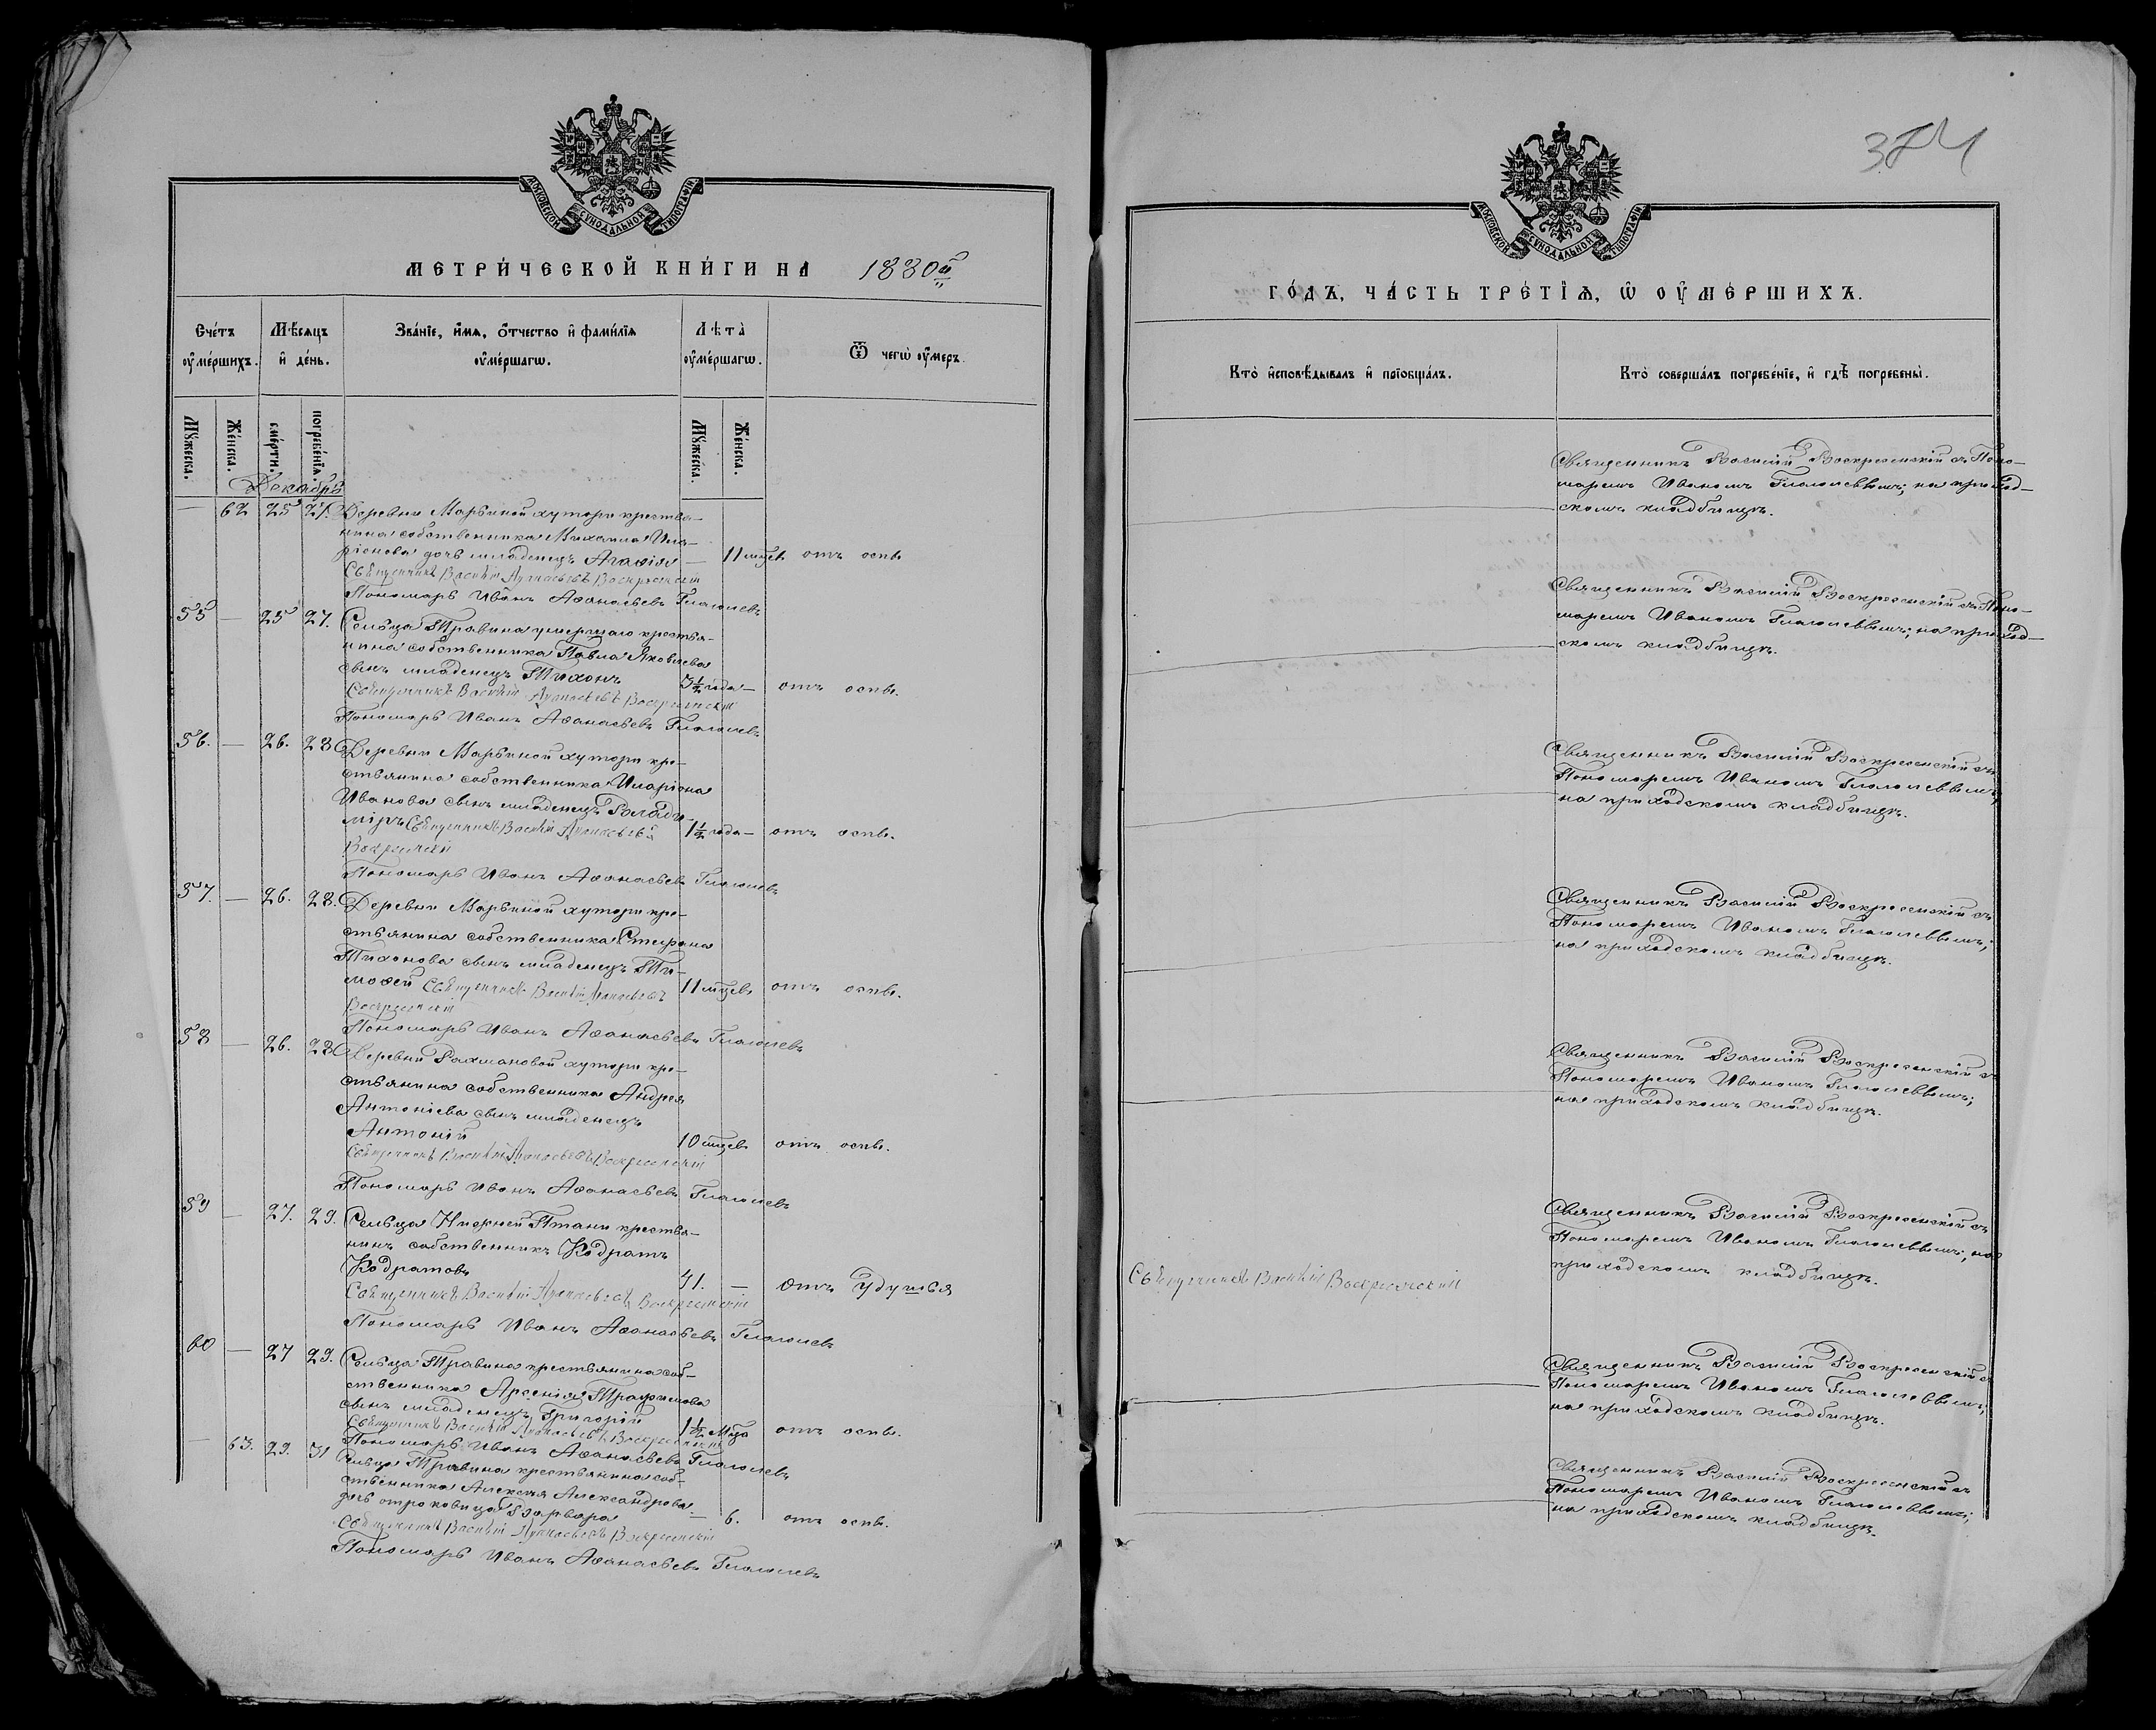 МОСКОВСКОЙ СУНОДАЛЬНОЙ ТИПОГРАФІИ.
МЕТРИ́ЧЕСКОЙ КНИ́ГИ НА 1880й
Сче́тъ оу҆ме́ршихъ.
Мѣ́сѧцъ и҆ де́нь.
Зва́нїе, и҆́мѧ, ѻ҆́тчество и҆ фами́лїѧ оу҆ме́ршагѡ.
Лѣ́та оу҆ме́ршагѡ.
Ѿ чегѡ̀ оу҆́меръ.
Мꙋ́жеска.
Же́нска.
сме́рти.
погребе́нїѧ.
Мꙋ́жеска.
Же́нска.
Декабрь
— 62 25 27. Деревни Марьиной хутора крестья-
нина собственника Михаила Ила-
ріонова дочь младенецъ Агафія — 11 мцевъ отъ оспы
Священникъ Василій Афанасьевъ Воскресенскій
Пономарь Иванъ Афанасьевъ Глаголевъ
55 — 25 27. Сельца Травина умершаго крестья-
нина собственника Павла Яковлева
сынъ младенецъ Тихонъ 3½ года — отъ оспы.
Священникъ Василій Афанасьевъ Воскресенскій
Пономарь Иванъ Афанасьевъ Глаголевъ
56. — 26. 28 Деревни Марьиной хутора кре-
стьянина собственника Иларіона
Иванова сынъ младенецъ Влади-
міръ Священникъ Василій Афанасьевъ 1½ года — отъ оспы.
Воскресенскій
Пономарь Иванъ Афанасьевъ Глаголевъ
57. — 26. 28. Деревни Марьиной хутора кре-
стьянина собственника Стефана
Тихонова сынъ младенецъ Ти-
мофей Священникъ Василій Афанасьевъ 11 мцевъ отъ оспы.
Воскресенскій
Пономарь Иванъ Афанасьевъ Глаголевъ
58 — 26. 28 Деревни Рахмановой хутора кре-
стьянина собственника Андрея
Антоніева сынъ младенецъ
Антоній 10 мцевъ отъ оспы.
Священникъ Василій Афанасьевъ Воскресенскій
Пономарь Иванъ Афанасьевъ Глаголевъ
59 — 27. 29. Сельца Нижней Птани крестья-
нинъ собственникъ Кодратъ
Кодратовъ 41. — Отъ удушья
Священникъ Василій Афанасьевъ Воскресенскій
Пономарь Иванъ Афанасьевъ Глаголевъ
60 — 27 29. Сельца Травина крестьянина соб-
ственника Арсенія Трафимова
сынъ младенецъ Григорій 1½ мца отъ оспы.
Священникъ Василій Афанасьевъ Воскресенскій
Пономарь Иванъ Афанасьевъ Глаголевъ
— 63. 29. 31 Сельца Травина крестьянина соб-
ственника Алексея Александрова
дочь отроковица Варвара — 6. отъ оспы.
Священникъ Василій Афанасьевъ Воскресенскій
Пономарь Иванъ Афанасьевъ Глаголевъ
МОСКОВСКОЙ СУНОДАЛЬНОЙ ТИПОГРАФІИ.
ГО́ДЪ, ЧА́СТЬ ТРЕ́ТЇѦ, Ѡ҆ ОУ҆МЕ́РШИХЪ.
Кто̀ и҆сповѣ́дывалъ и҆ прїѡбща́лъ.
Кто̀ соверша́лъ погребе́нїе, и҆ гдѣ̀ погребены̀.
Священникъ Василій Воскресенскій съ Поно-
маремъ Иваномъ Глаголевымъ; на приход-
скомъ кладбищѣ.
Священникъ Василій Воскресенскій съ Поно-
маремъ Иваномъ Глаголевымъ; на приход-
скомъ кладбищѣ.
Священникъ Василій Воскресенскій съ
Пономаремъ Иваномъ Глаголевымъ;
на приходскомъ кладбищѣ.
Священникъ Василій Воскресенскій съ
Пономаремъ Иваномъ Глаголевымъ;
на приходскомъ кладбищѣ.
Священникъ Василій Воскресенскій съ
Пономаремъ Иваномъ Глаголевымъ;
на приходскомъ кладбищѣ.
Священникъ Василій Воскресенскій
Священникъ Василій Воскресенскій съ
Пономаремъ Иваномъ Глаголевымъ; на
приходскомъ кладбищѣ.
Священникъ Василій Воскресенскій съ
Пономаремъ Иваномъ Глаголевымъ;
на приходскомъ кладбищѣ.
Священникъ Василій Воскресенскій съ
Пономаремъ Иваномъ Глаголевымъ;
на приходскомъ кладбищѣ.